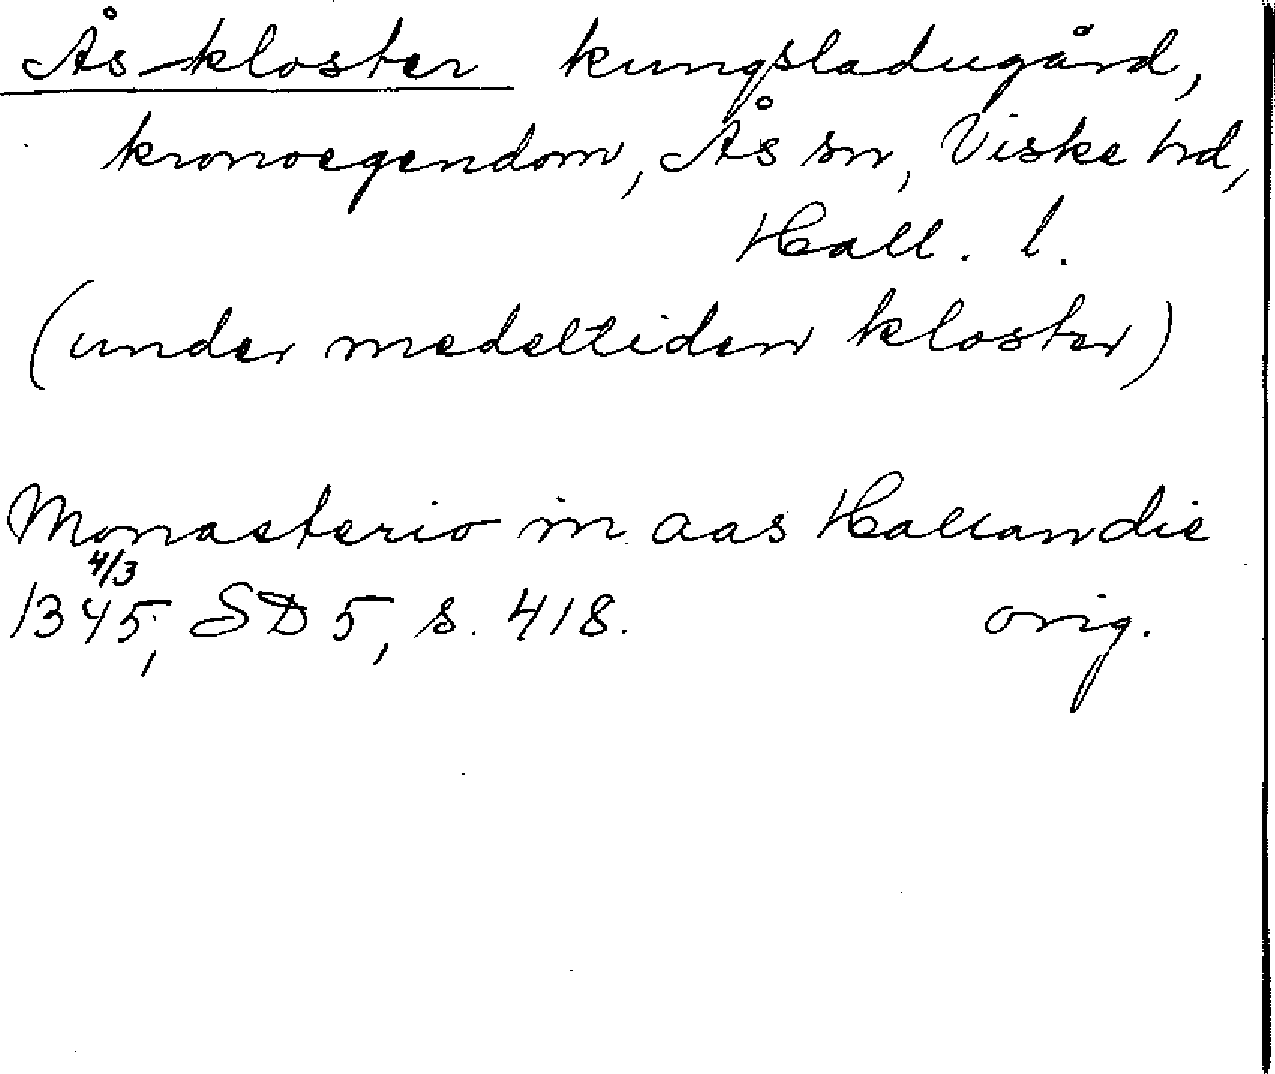 Ås kloster kungsladugård,
kronoegendom, Ås sn, Viske hd,
Hall. l.
(under medeltiden kloster)
Monasterio in aas Hallandie
4/3
1345, SD 5, s. 418. orig.